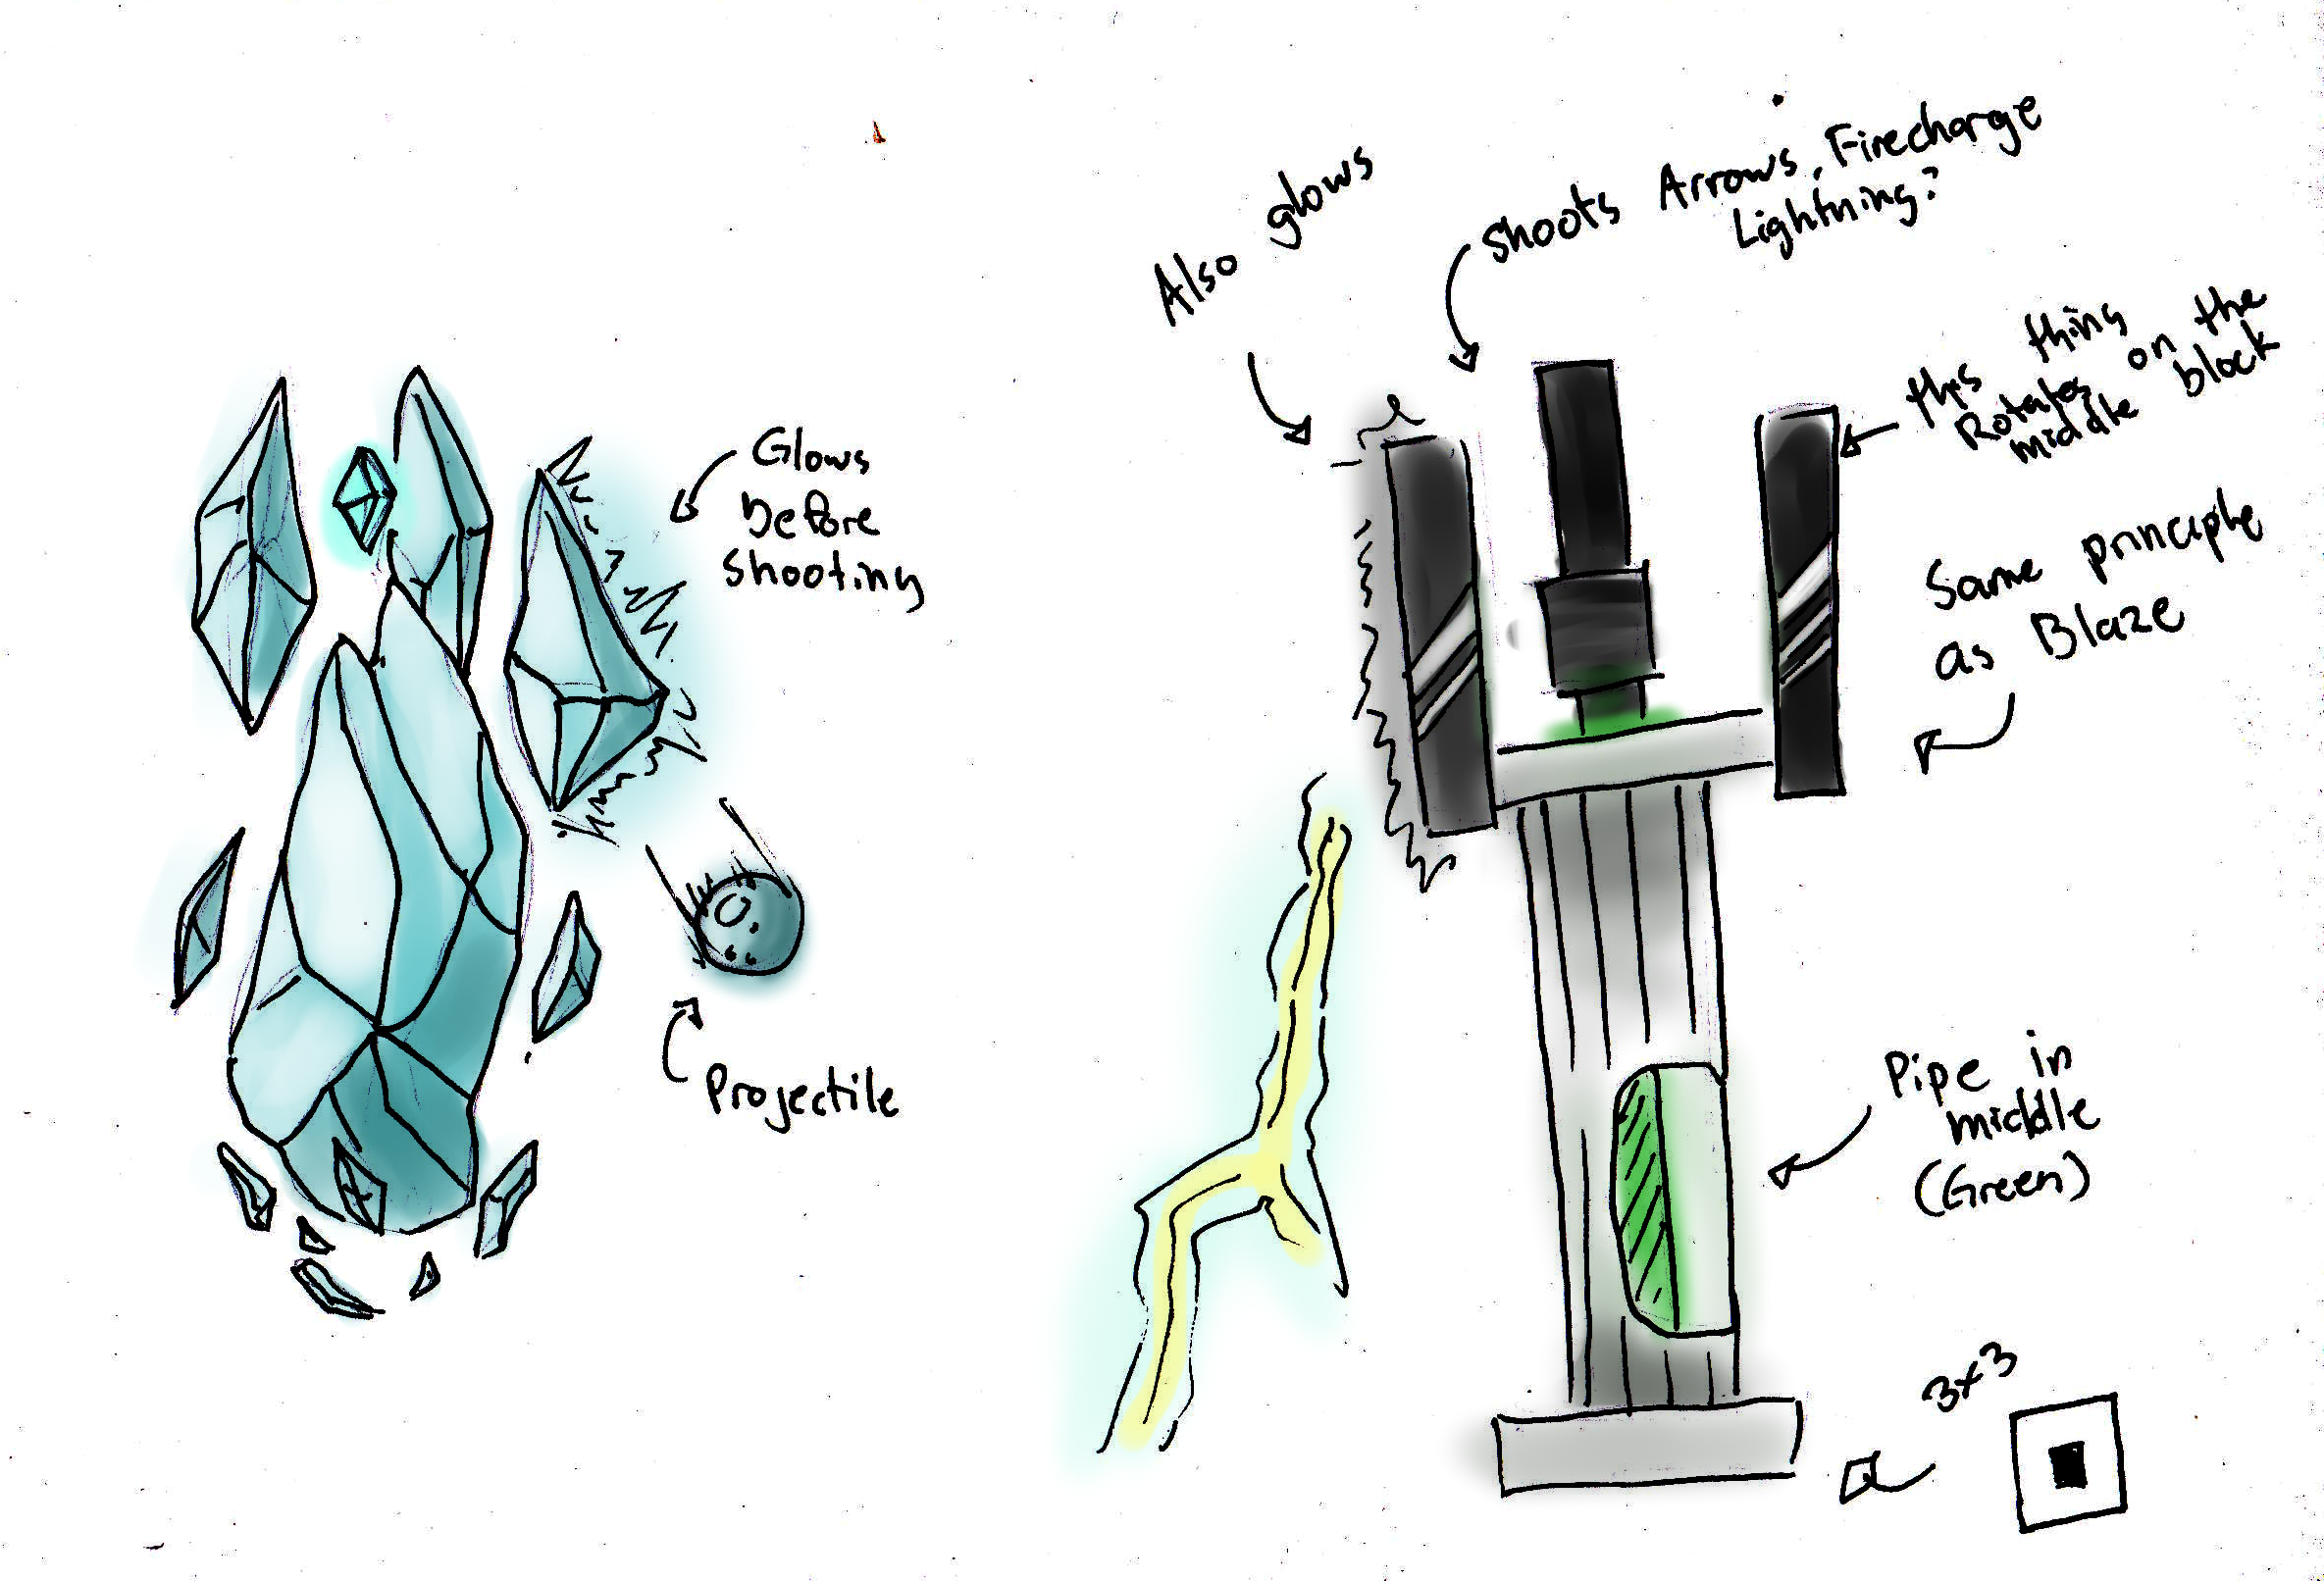 Glows
before
shooting
Projectile
Also glows
shoots Arrows, Firecharge
Lightning?
this thing
Rotates on the
middle block
Same principle
as Blaze
Pipe in
middle
(Green)
3x3